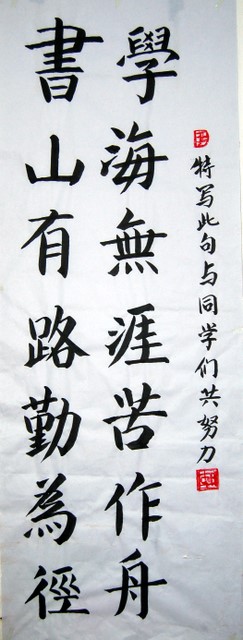 書山有路勤為徑
學海無涯苦作舟
特写此句与同学们共努力